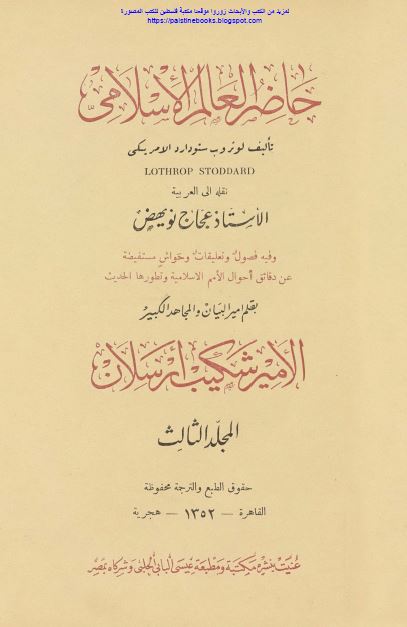 لمزيد من الكتب والأبحاث زوروا موقعنا مكتبة فلسطين للكتب المصورة
https://palstinebooks.blogspot.com
حاضر العالم الإسلامي
تأليف لوثروب ستودارد الامريكي
LOTHROP STODDARD
نقله الى العربية
الأستاذ عجاج نويهض
وفيه فصول وتعليقات وحواش مستفيضة
عن دقائق أحوال الأمم الاسلامية وتطورها الحديث
بقلم امير البيان والمجاهد الكبير
الأمير شكيب أرسلان
المجلد الثالث
حقوق الطبع والترجمة محفوظة
القاهرة — ١٣٥٢ — هجرية
عنيت بنشره مكتبة ومطبعة عيسى البابي الحلبي وشركاه بمصر